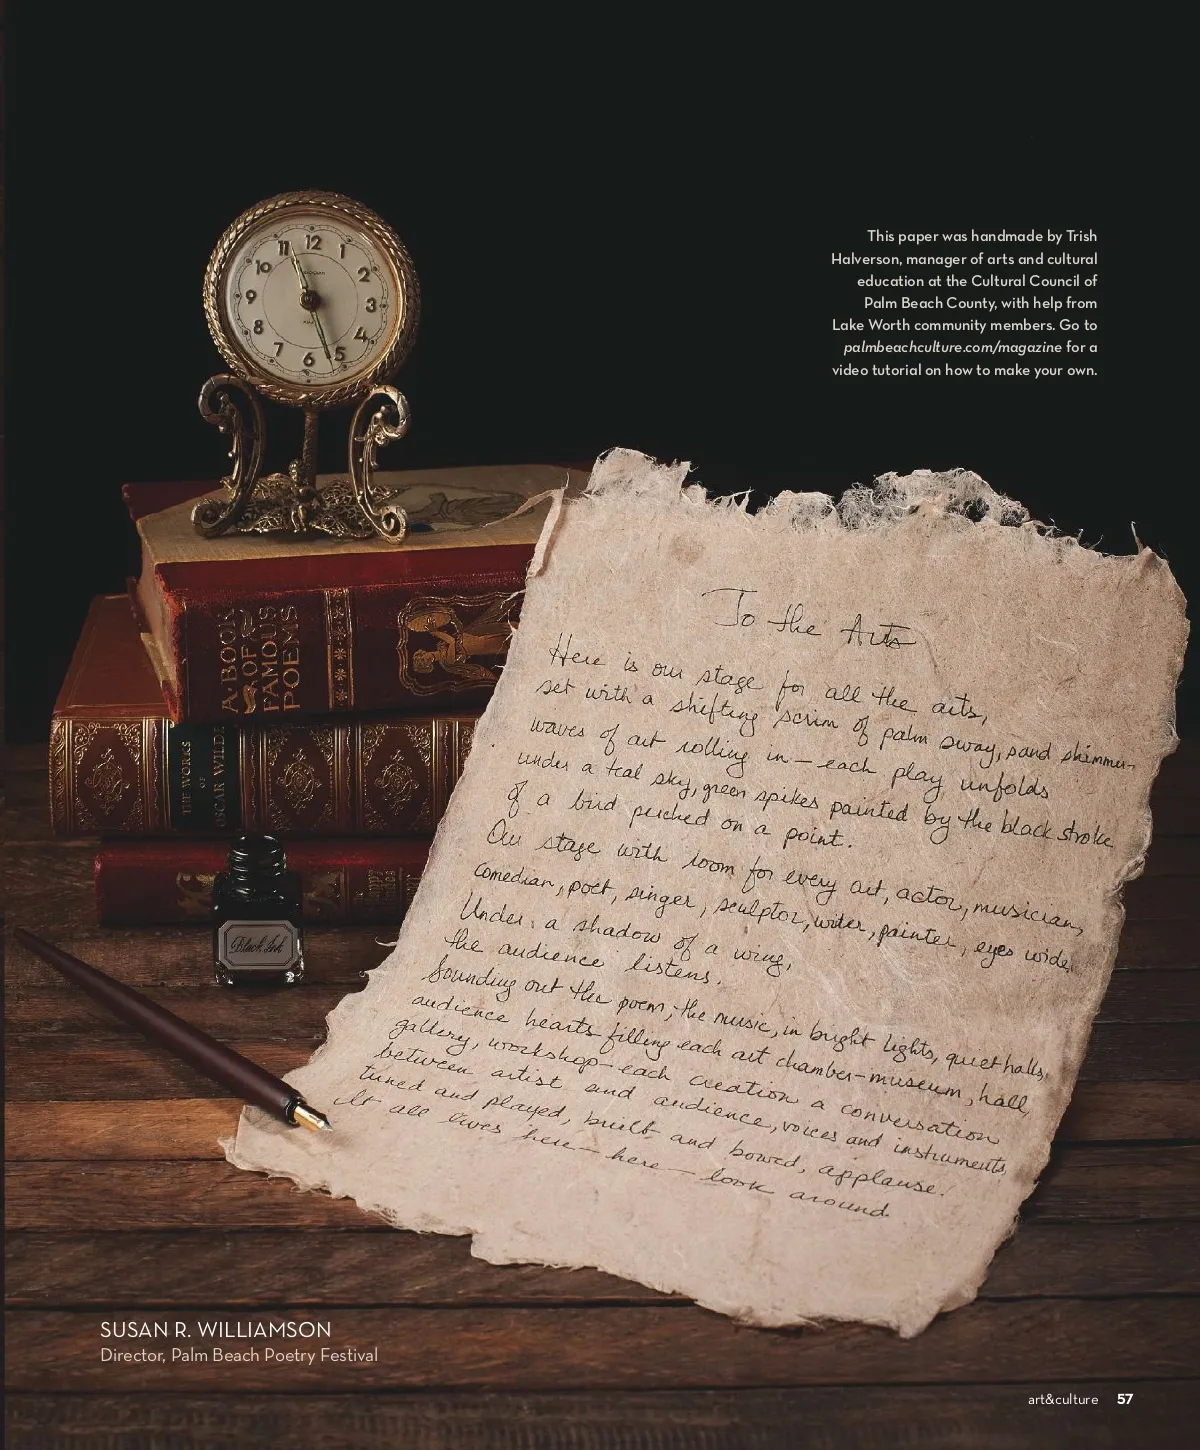 11 12 1
10 2
9 3
8 4
7 6 5
This paper was handmade by Trish
Halverson, manager of arts and cultural
education at the Cultural Council of
Palm Beach County, with help from
Lake Worth community members. Go to
palmbeachculture.com/magazine for a
video tutorial on how to make your own.
A·BOOK
OF
FAMOUS
POEMS
THE WORKS
OF
OSCAR WILDE
Black Ink
To the Arts
Here is our stage for all the arts,
set with a shifting scrim of palm sway, sand shimmer
waves of art rolling in — each play unfolds
under a teal sky, green spikes painted by the black stroke
of a bird perched on a point.
Our stage with room for every art, actor, musician,
comedian, poet, singer, sculptor, writer, painter, eyes wide,
Under a shadow of a wing,
the audience listens.
Sounding out the poem, the music, in bright lights, quiet halls,
audience hearts filling each art chamber – museum, hall,
gallery, workshop – each creation a conversation
between artist and audience, voices and instruments
tuned and played, built and bowed, applause!
It all lives here — here — look around
SUSAN R. WILLIAMSON
Director, Palm Beach Poetry Festival
art&culture 57